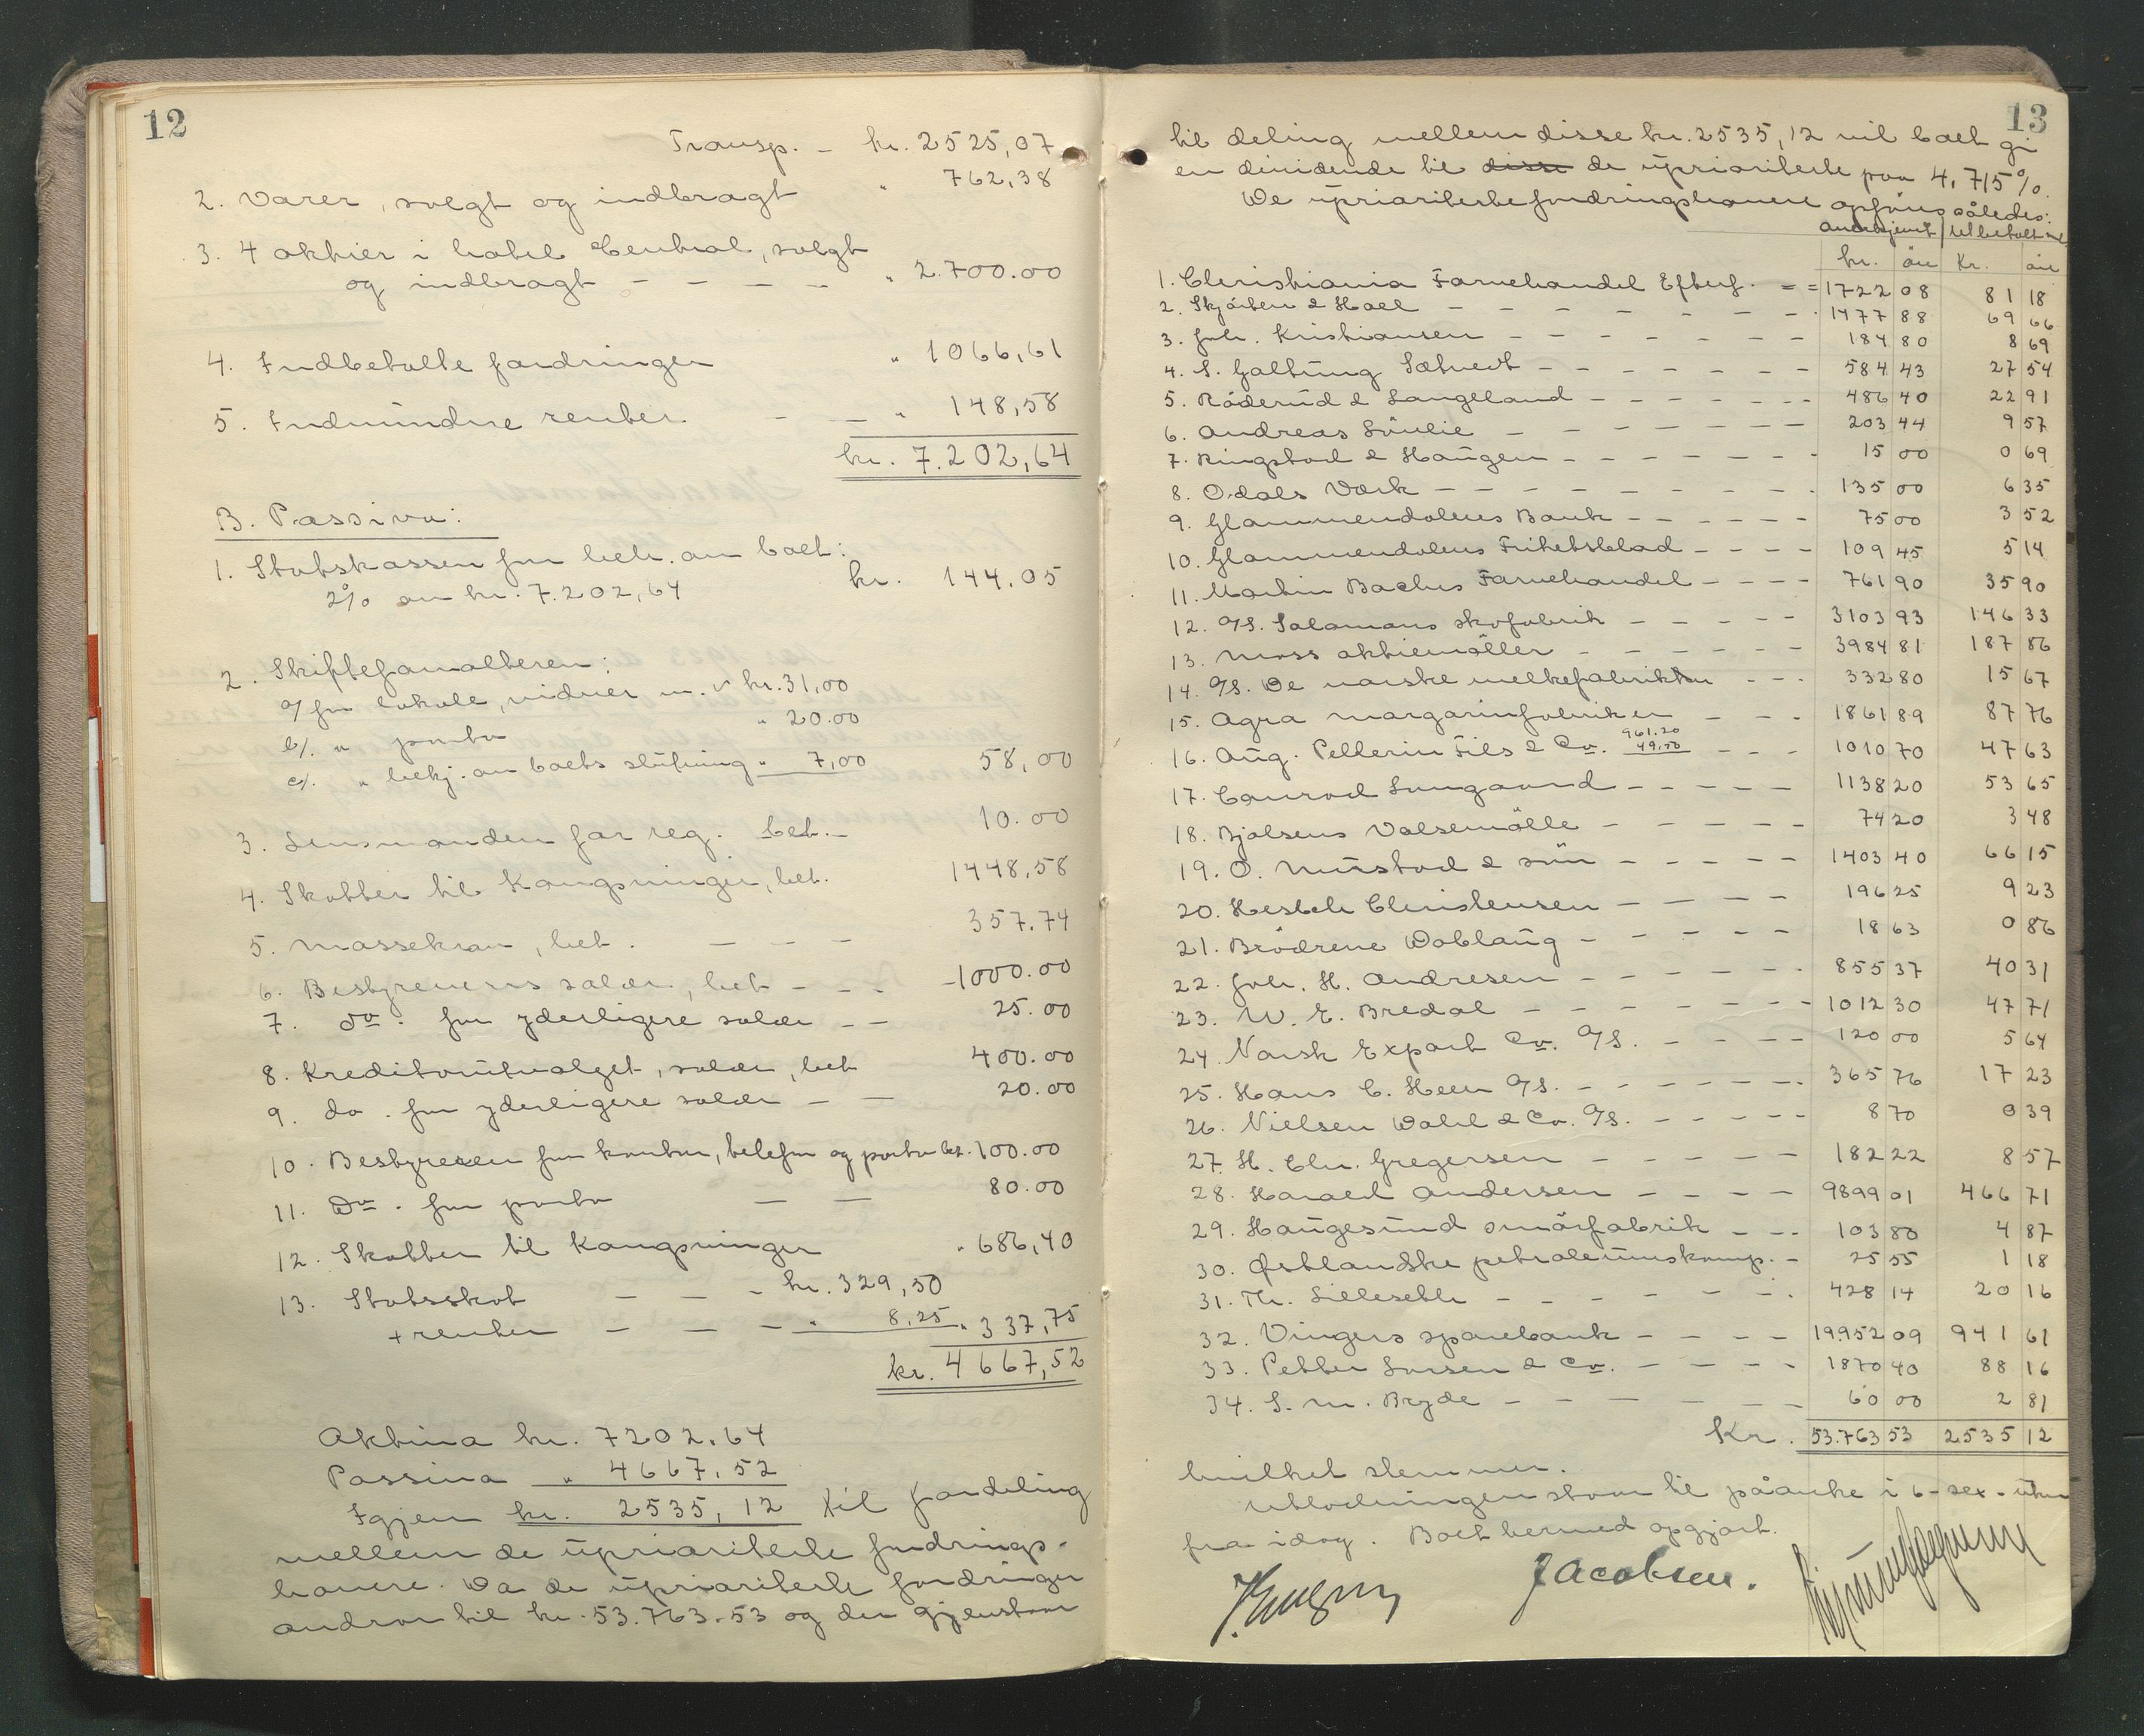 12
Transp. - kr. 2525,07
2. Varer, solgt og indbragt " 762,38
3. 4 aktier i hotel Central, solgt
og indbragt - - - - " 2.700.00
4. Indbetalte fordringer " 1066,61
5. Indvundne renter. - - " 148,58
kr. 7.202,64
B. Passiva:
1. Statskassen for beh. av boet:
2% av kr. 7.202,64 kr. 144.05
2. Skifteforvalteren:
a/ for lokale, vidner m. v kr. 31,00
b/. " porto " 20.00
c/. " bekj. av boets slutning " 7,00 58,00
3. Lensmanden for reg. bet. - 10.00
4. Skatter til Kongsvinger, bet. 1448,58
5. Massekrav, bet. - - - 357.74
6. Bestyrerens salær, bet - - - 1000.00
7. Do. for yderligere salær - - 25.00
8. Kreditorutvalget, salær, bet 400.00
9. do. for yderligere salær - - 20.00
10. Bestyreren for kontor, telefon og porto bet. 100.00
11. Do. for porto - - 80.00
12. Skatter til Kongsvinger " 686,40
13. Statsskat - - - kr. 329,50
+ renter - - - - " 8,25 " 337,75
kr. 4667,52
Aktiva kr. 7202,64
Passiva " 4667,52
Igjen kr. 2535,12 til fordeling
mellem de upriorterte fordrings-
havere. Da de upriorterte fordringer
andrar til kr. 53.763.53 og der gjenstaar
13
til deling mellem disse kr. 2535,12 vil boet gi
en dividende til disse de upriorterte paa 4,715%.
De upriorterte fordringshavere opføres således:
anerkjent utbetalt med
kr. øre Kr. øre
1. Christiania Farvehandel Efterf. - = 1722 08 81 18
2. Skjörten & Hoel - - - - - - - 1477 88 69 66
3. Joh. Kristiansen - - - - - - 184 80 8 69
4. S. Galtung Sætveit - - - - - - 584 43 27 54
5. Råderud & Langeland - - - - - - 486 40 22 91
6. Andreas Lövlie - - - - - - - 203 44 9 57
7. Ringstad & Haugen - - - - - - 15 00 0 69
8. Odals Værk - - - - - - - - - 135 00 6 35
9. Glommendalens Bank - - - - - - 75 00 3 52
10. Glommendalens Frihetsblad - - - - 109 45 5 14
11. Martin Bachus Farvehandel - - - - 761 90 35 90
12. A/S. Salomons skofabrik - - - - - 3103 93 146 33
13. Moss aktiemöller - - - - - - 3984 81 187 86
14. A/S. De norske melkefabrikker - - - 332 80 15 67
15. Agra margarinfabriker - - - 1861 89 87 76
16. Aug. Pellerin Fils & Co. 961.20 49.50 - - - 1010 70 47 63
17. Conrad Langaard - - - - - 1138 20 53 65
18. Bjølsens Valsemölle - - - - - 74 20 3 48
19. O. Mustad & sön - - - - - 1403 40 66 15
20. Hesteh Christensen - - - - 196 25 9 23
21. Brödrene Doblaug - - - - - 18 63 0 86
22. Joh. H. Andresen - - - - - - 855 37 40 31
23. W. E. Bredal - - - - - - - 1012 30 47 71
24. Norsk Export Co. A/S. - - - - 120 00 5 64
25. Hans C. Heen A/S. - - - - - - 365 76 17 23
26. Nielsen Wahl & Co. A/S. - - - - - 8 70 0 39
27. H. Chr. Gregersen - - - - - 182 22 8 57
28. Harald Andersen - - - - 9899 01 466 71
29. Haugesund smörfabrik - - - 103 80 4 87
30. Østlandske petroleumskomp. - 25 55 1 18
31. Th. Lilleseth - - - - - - - 428 14 20 16
32. Vingers sparebank - - - - 19.952 09 941 61
33. Petter Larsen & Co. - - - - 1870 40 88 16
34. S. M. Bryde - - - - - - 60 00 2 81
Kr. 53.763 53 2535 12
hvilket stemmer.
Utlodningen staar til påanke i 6 - sex - uker
fra idag. Boet hermed opgjort.
Jacobsen.